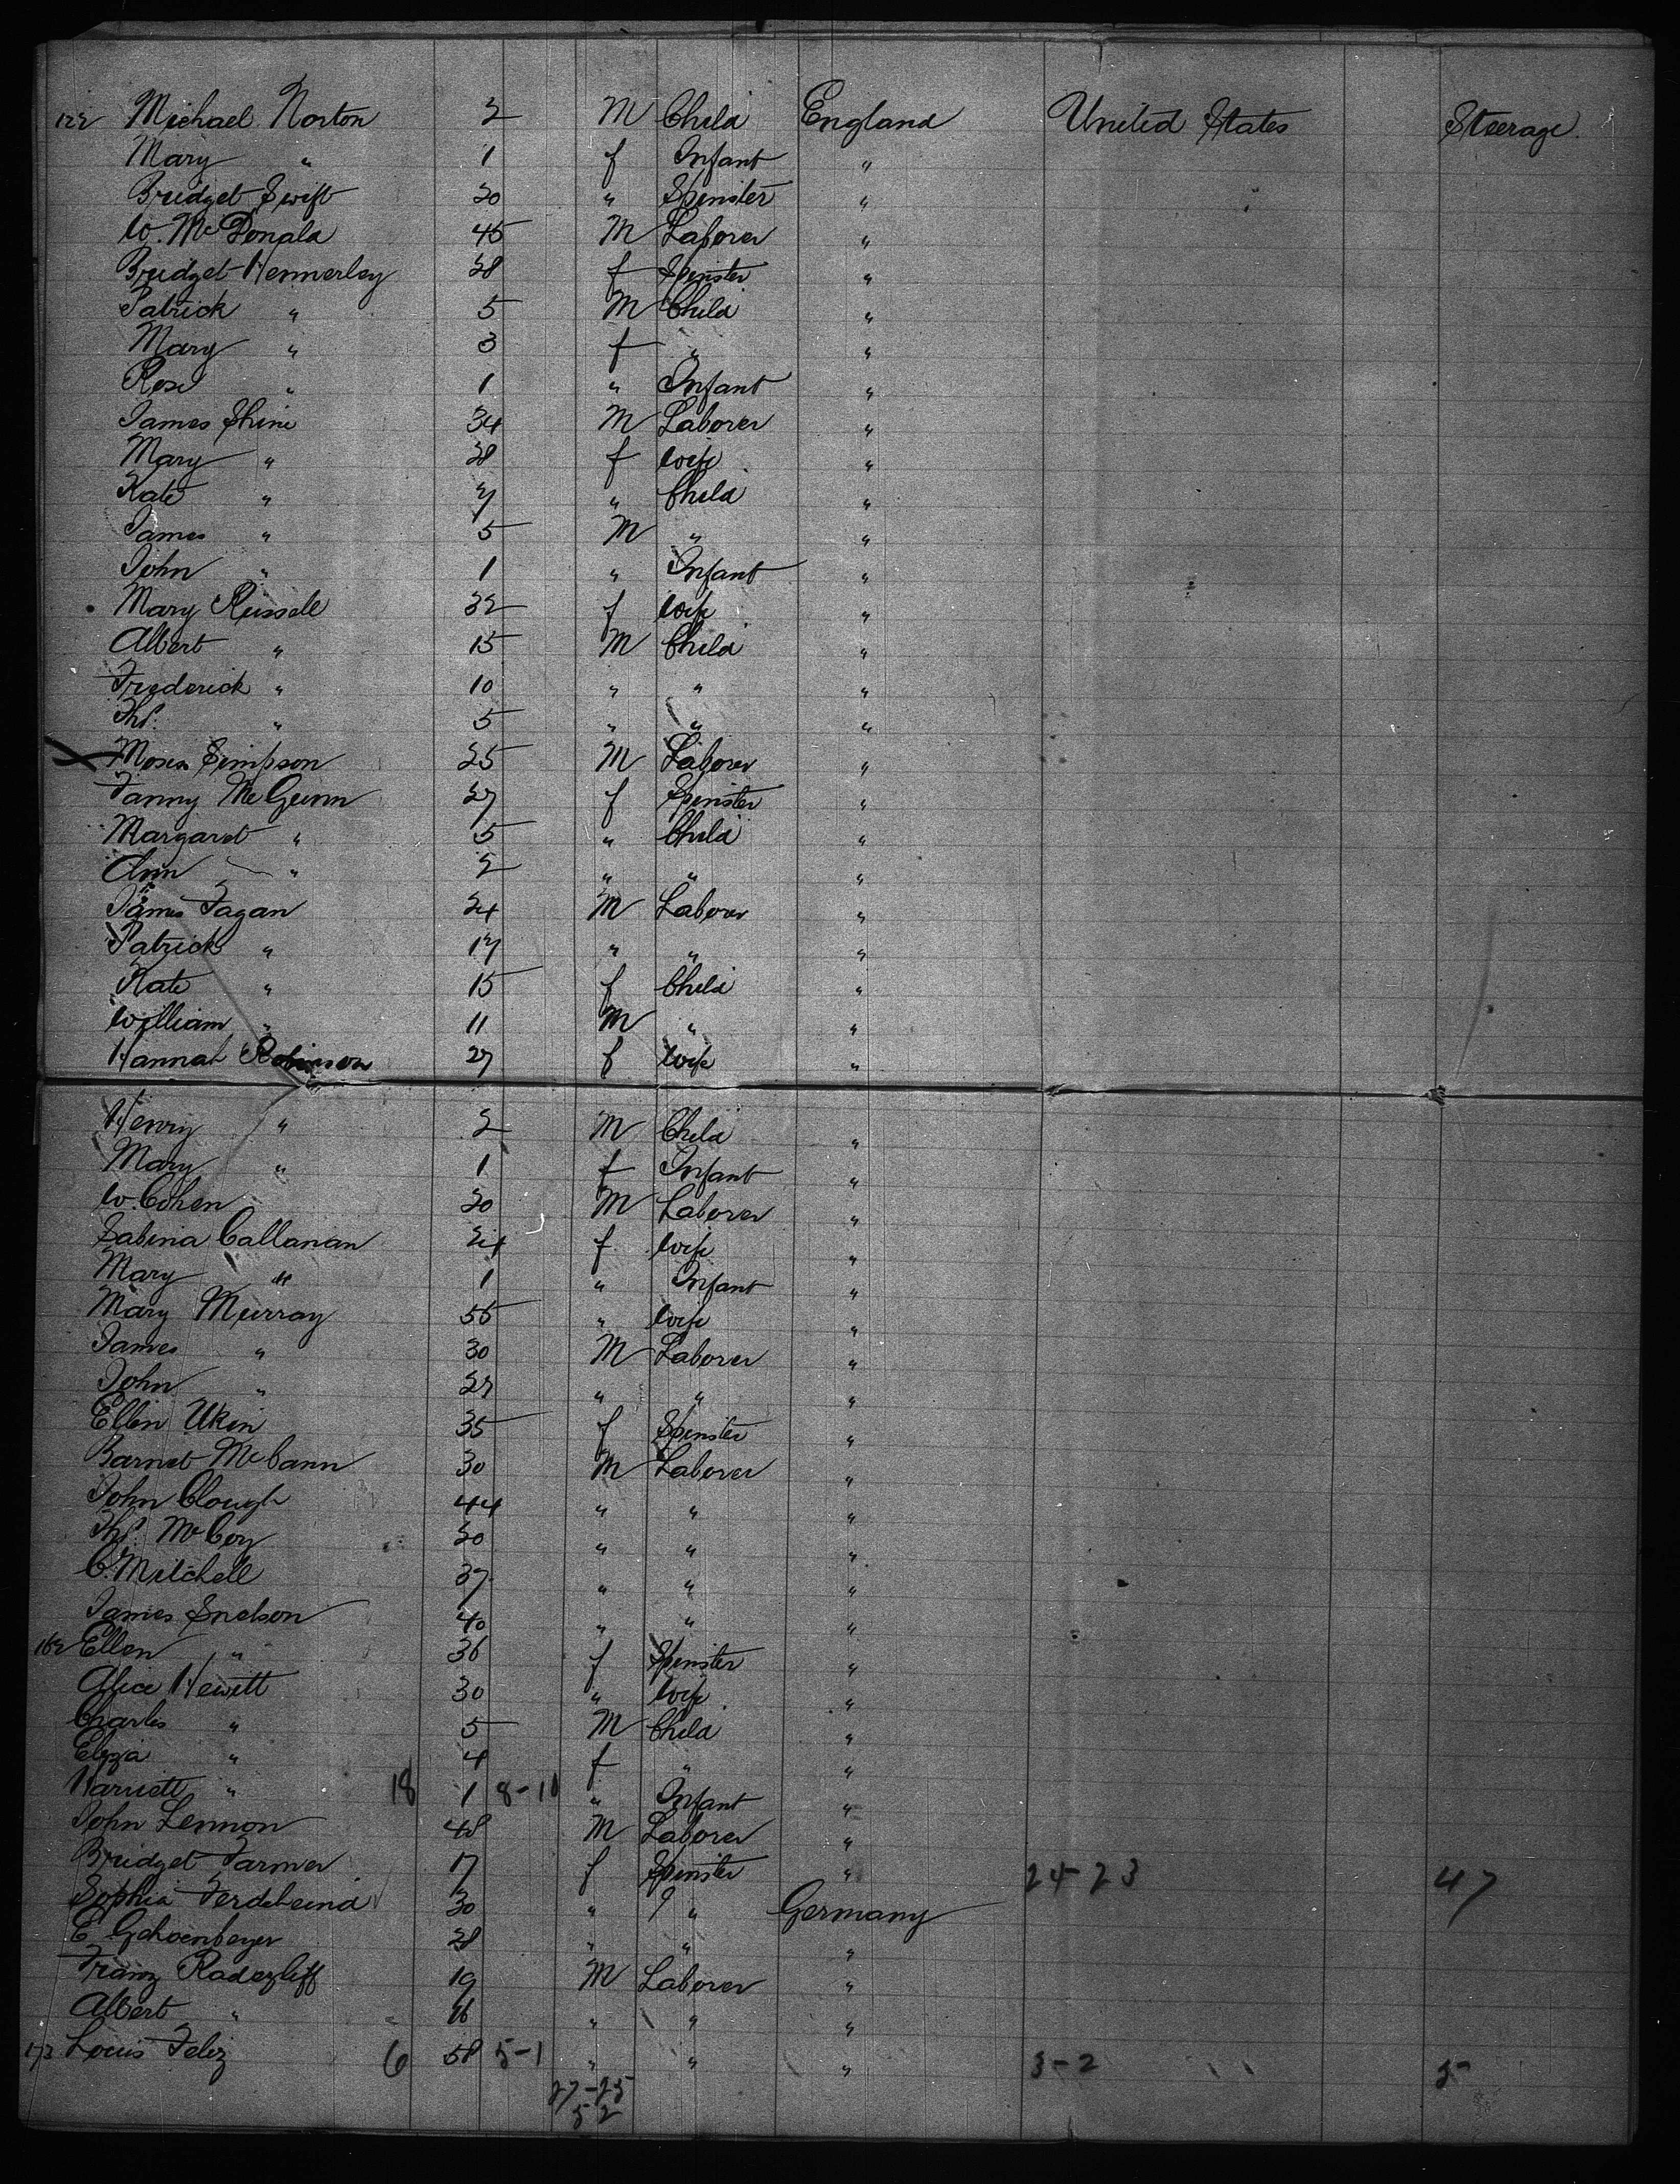 122 Michael Norton 2 M Child England United States Steerage
Mary " 1 f Infant "
Bridget Swift 20 " Spinster "
W. McDonald 45 M Laborer "
Bridget Hennerley 28 f Spinster "
Patrick " 5 M Child "
Mary " 3 f " "
Rose " 1 " Infant "
James Shine 34 M Laborer "
Mary " 28 f Wife "
Kate " 7 " Child "
James " 5 M " "
John " 1 " Infant "
Mary Russell 32 f Wife "
Albert " 15 M Child "
Frederick " 10 " " "
Ths. " 5 " " "
Moses Simpson 25 M Laborer "
Fanny McGunn 27 f Spinster "
Margaret " 5 " Child "
Ann " 2 " " "
James Fagan 24 M Laborer "
Patrick " 17 " " "
Kate " 15 f Child "
William " 11 M " "
Hannah Robinson 27 f Wife "
Henry " 2 M Child "
Mary " 1 f Infant "
W. Cohen 20 M Laborer "
Sabina Callanan 24 f Wife "
Mary " 1 " Infant "
Mary Murray 55 " Wife "
James " 30 M Laborer "
John " 27 " " "
Ellen Ukin 35 f Spinster "
Barnet McCann 30 M Laborer "
John Clough 44 " " "
Ths. McCoy 20 " " "
C. Mitchell 37 " " "
James Snelson 40 " " "
162 Ellen " 36 f Spinster "
Alice Hewitt 30 " Wife "
Charles " 5 M Child "
Eliza " 4 f " "
Harriett " 18 1 8-10 " Infant "
John Lennon 48 M Laborer "
Bridget Farmer 17 f Spinster " 24-23 47
Sophia 30 " " Germany
E 28 " " "
Franz Radezliff 19 M Laborer "
Albert " 16 " " "
173 Louis Feliz 6 58 5-1 " " " 3-2 5
27-25
5 2